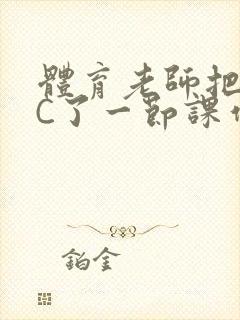 體育老師把
C了一節課作
鉑金